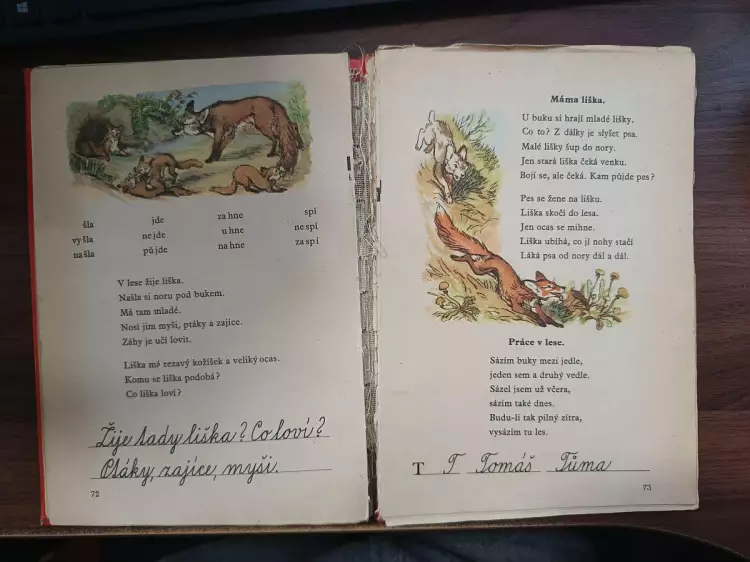 šla jde za hne spí
vy šla ne jde u hne ne spí
na šla pů jde na hne za spí
V lese žije liška.
Našla si noru pod bukem.
Má tam mladé.
Nosí jim myši, ptáky a zajíce.
Záhy je učí lovit.
Liška má rezavý kožíšek a veliký ocas.
Komu se liška podobá?
Co liška loví?
Žije tady liška? Co loví?
Ptáky, zajíce, myši.
72
Máma liška.
U buku si hrají mladé lišky.
Co to? Z dálky je slyšet psa.
Malé lišky šup do nory.
Jen stará liška čeká venku.
Bojí se, ale čeká. Kam půjde pes?
Pes se žene na lišku.
Liška skočí do lesa.
Jen ocas se mihne.
Liška ubíhá, co jí nohy stačí
Láká psa od nory dál a dál.
Práce v lese.
Sázím buky mezi jedle,
jeden sem a druhý vedle.
Sázel jsem už včera,
sázím také dnes.
Budu-li tak pilný zítra,
vysázím tu les.
T T Tomáš Tůma
73